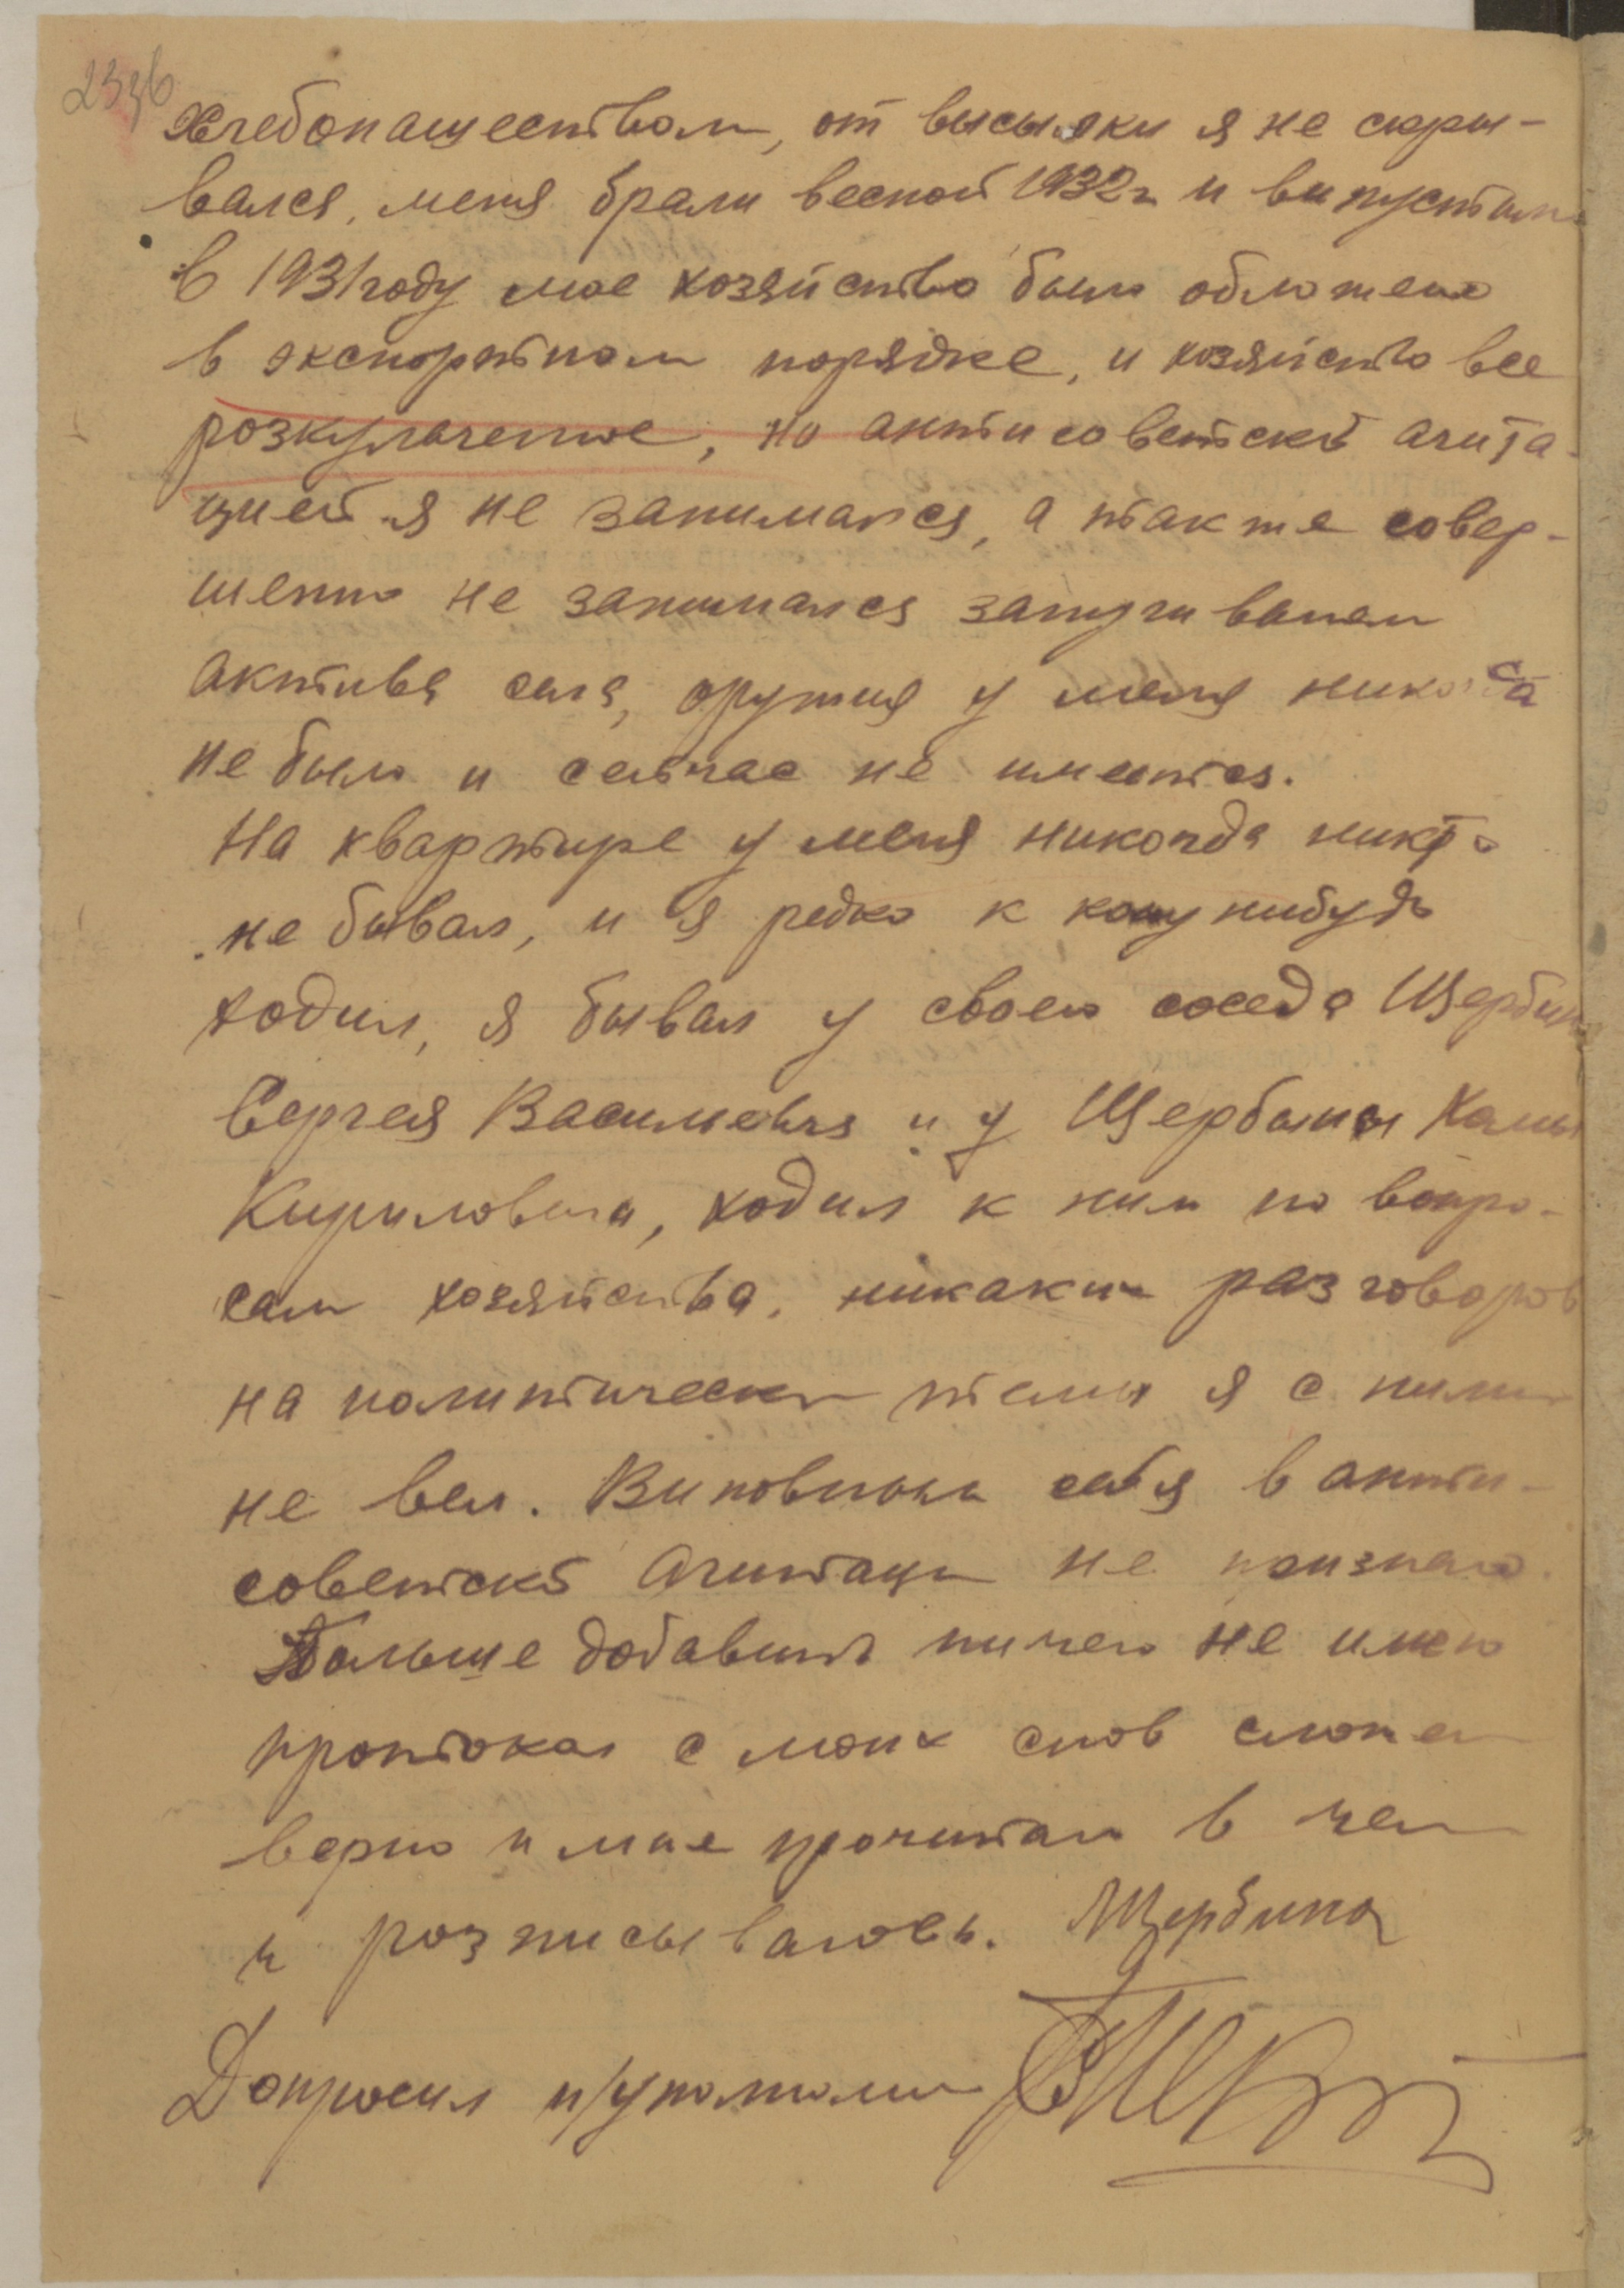 Хлебопашеством, от высылки я не скры-
вался, меня брали весной 1932г и выпустили
в 1931 году мое хозяйство было обложено
в экспортном порядке, и хозяйство все
розкулаченное, но антисоветской агита-
цией я не занимался, а также совер-
шенно не занимался запугиванем
актива села, оружия у меня никогда
не было и сейчас не имеется.
На квартире у меня никогда никто
не бывал, и я редко к кому нибудь
ходил, я бывал у своего соседа Щербин
Сергея Василиевича и у Щербины
Кириловича, ходил к ним по вопро-
сам хозяйства, никаких разговоров
на политически темы я с ними
не вел. Виновным себя в анти-
советской агитации не признаю.
Больше добавить ничего не имею
протокол с моих слов сложен
верно и мне прочитан в чем
и розписываюсь. Щербина
Допросил п/уполном